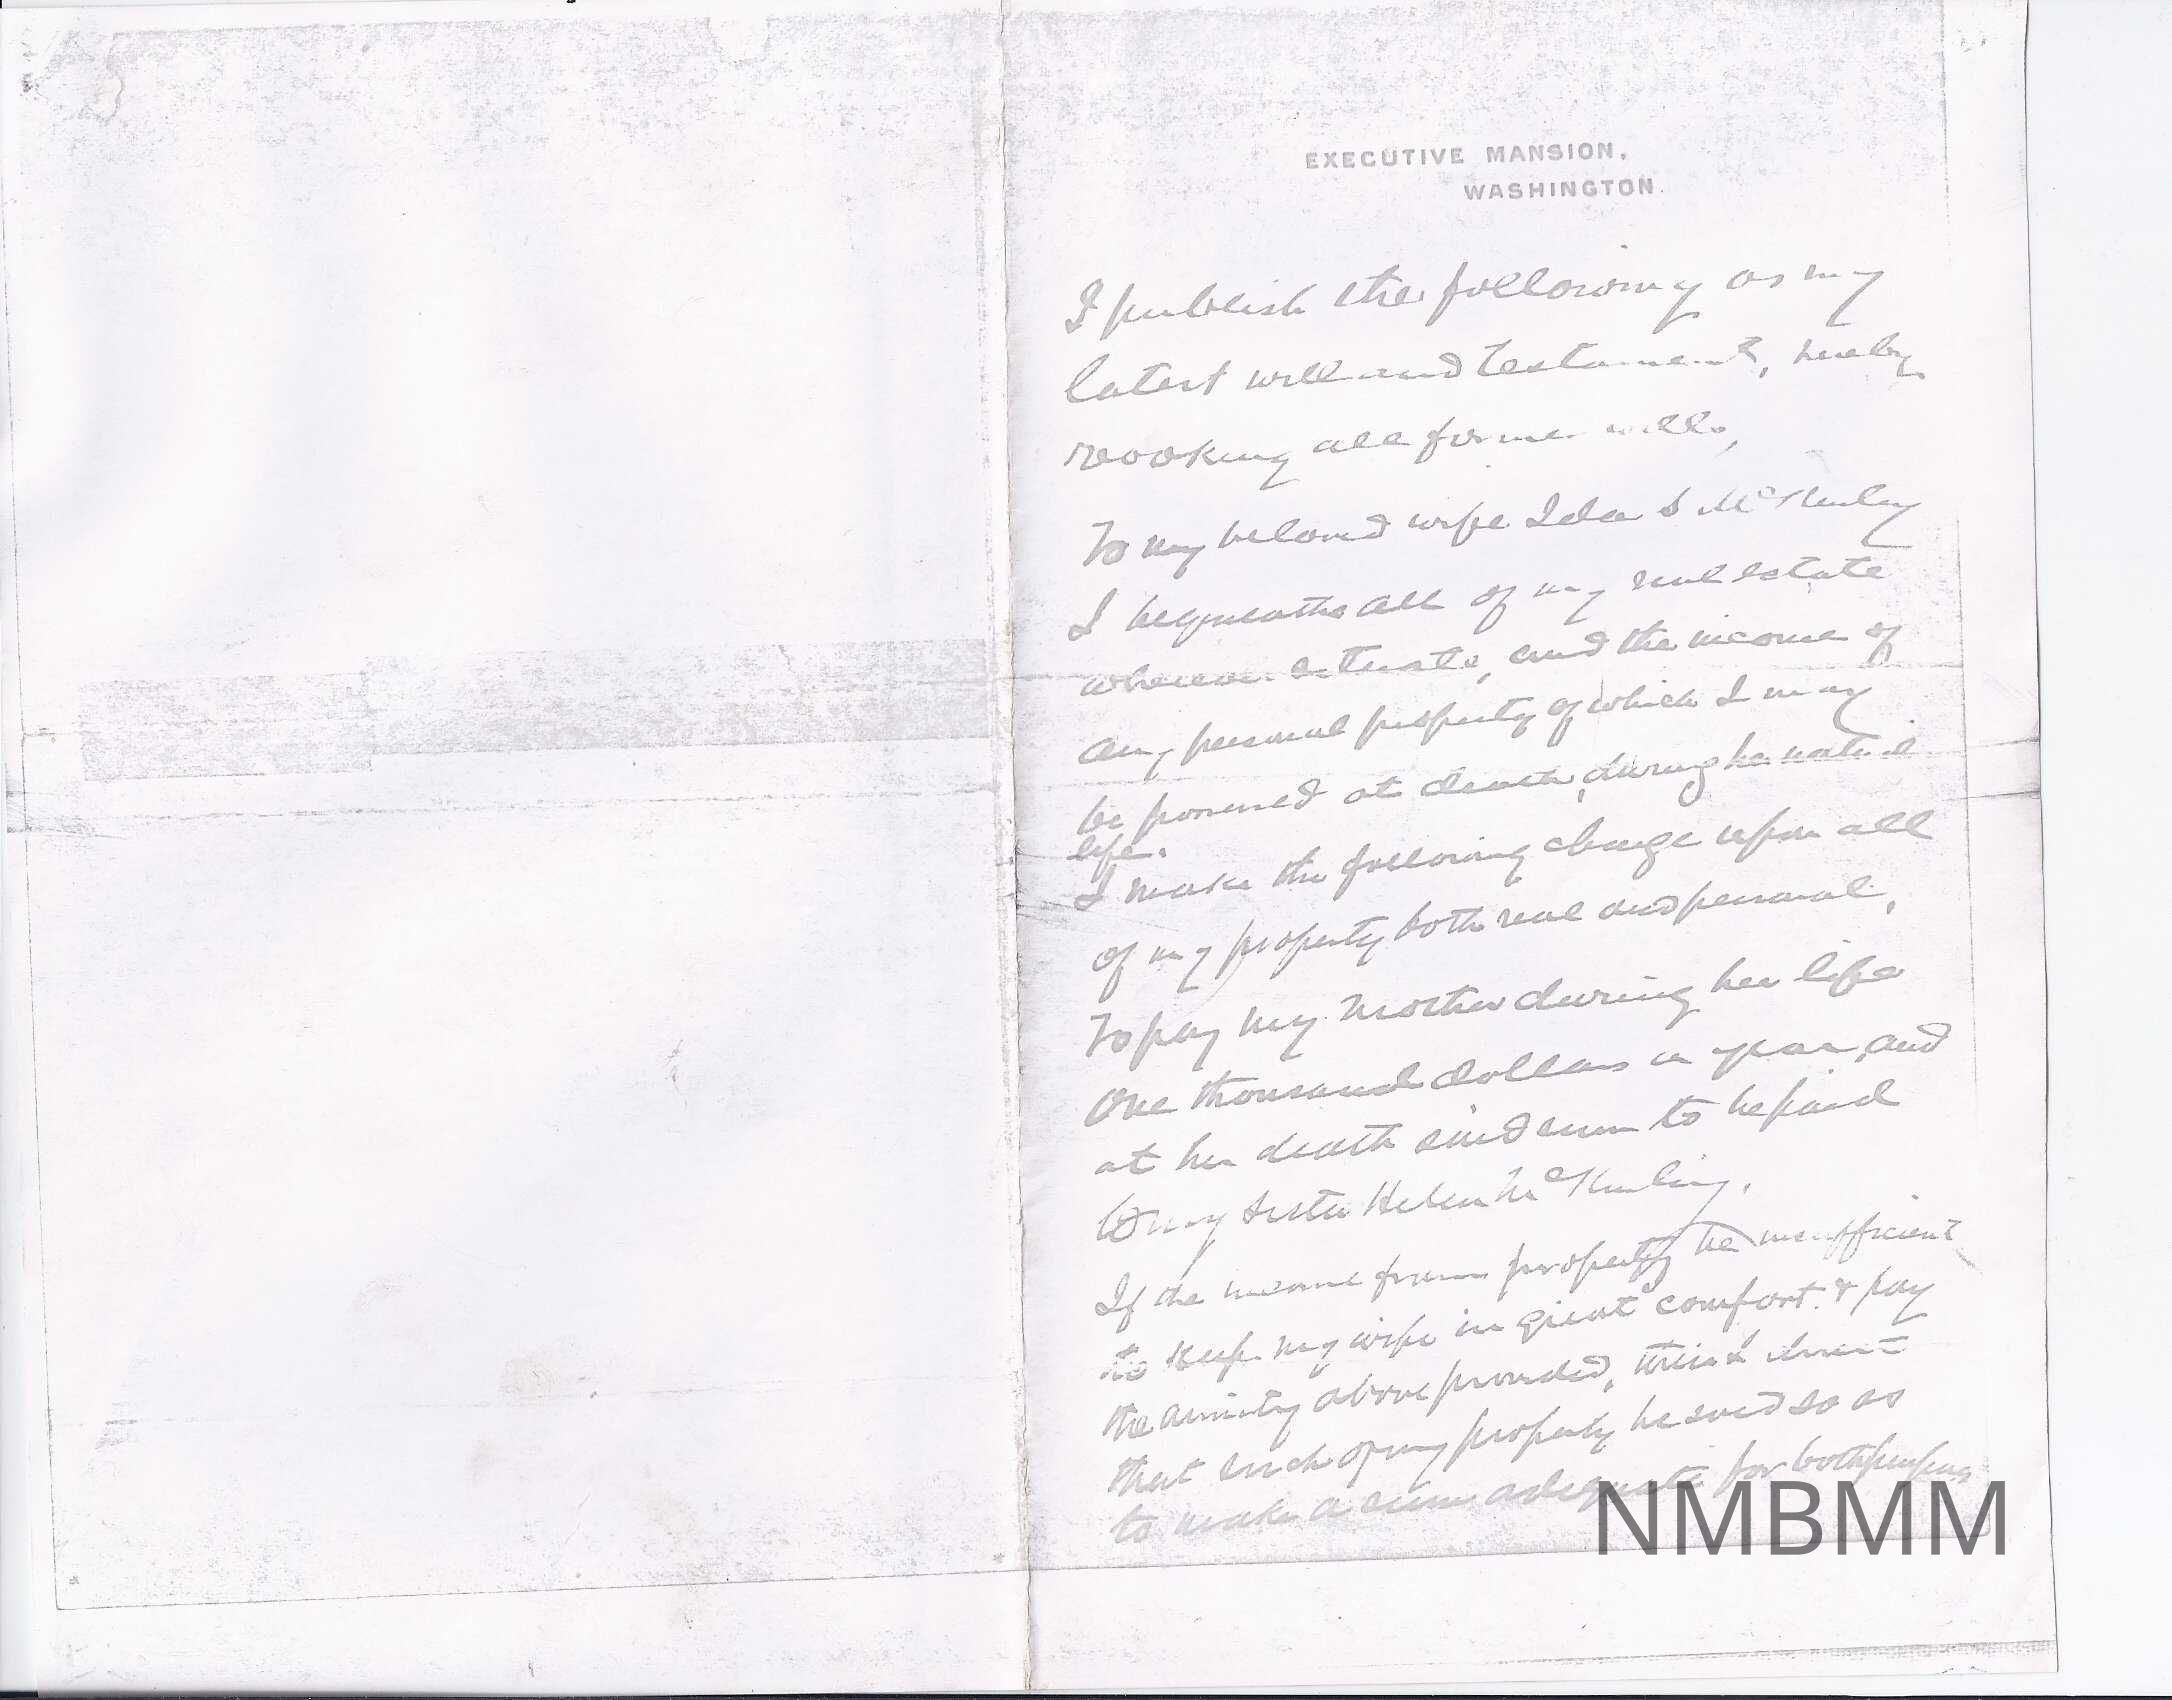 EXECUTIVE MANSION,
WASHINGTON.
I publish the following as my
latest will and testament, hereby
revoking all former wills,
To my beloved wife Ida S McKinley
I bequeath all of my real estate
wherever situate, and the income of
any personal property of which I may
be possessed at death, during her natural
life.
I make the following charge upon all
of my property both real and personal,
To pay my mother during her life
One thousand dollars a year, and
at her death said sum to be paid
to my sister Helen McKinley.
If the income from property be insufficient
to keep my wife in great comfort & pay
the annuity above provided, then I direct
that such of my property be sold so as
to make a sum adequate for both purposes
NMBMM